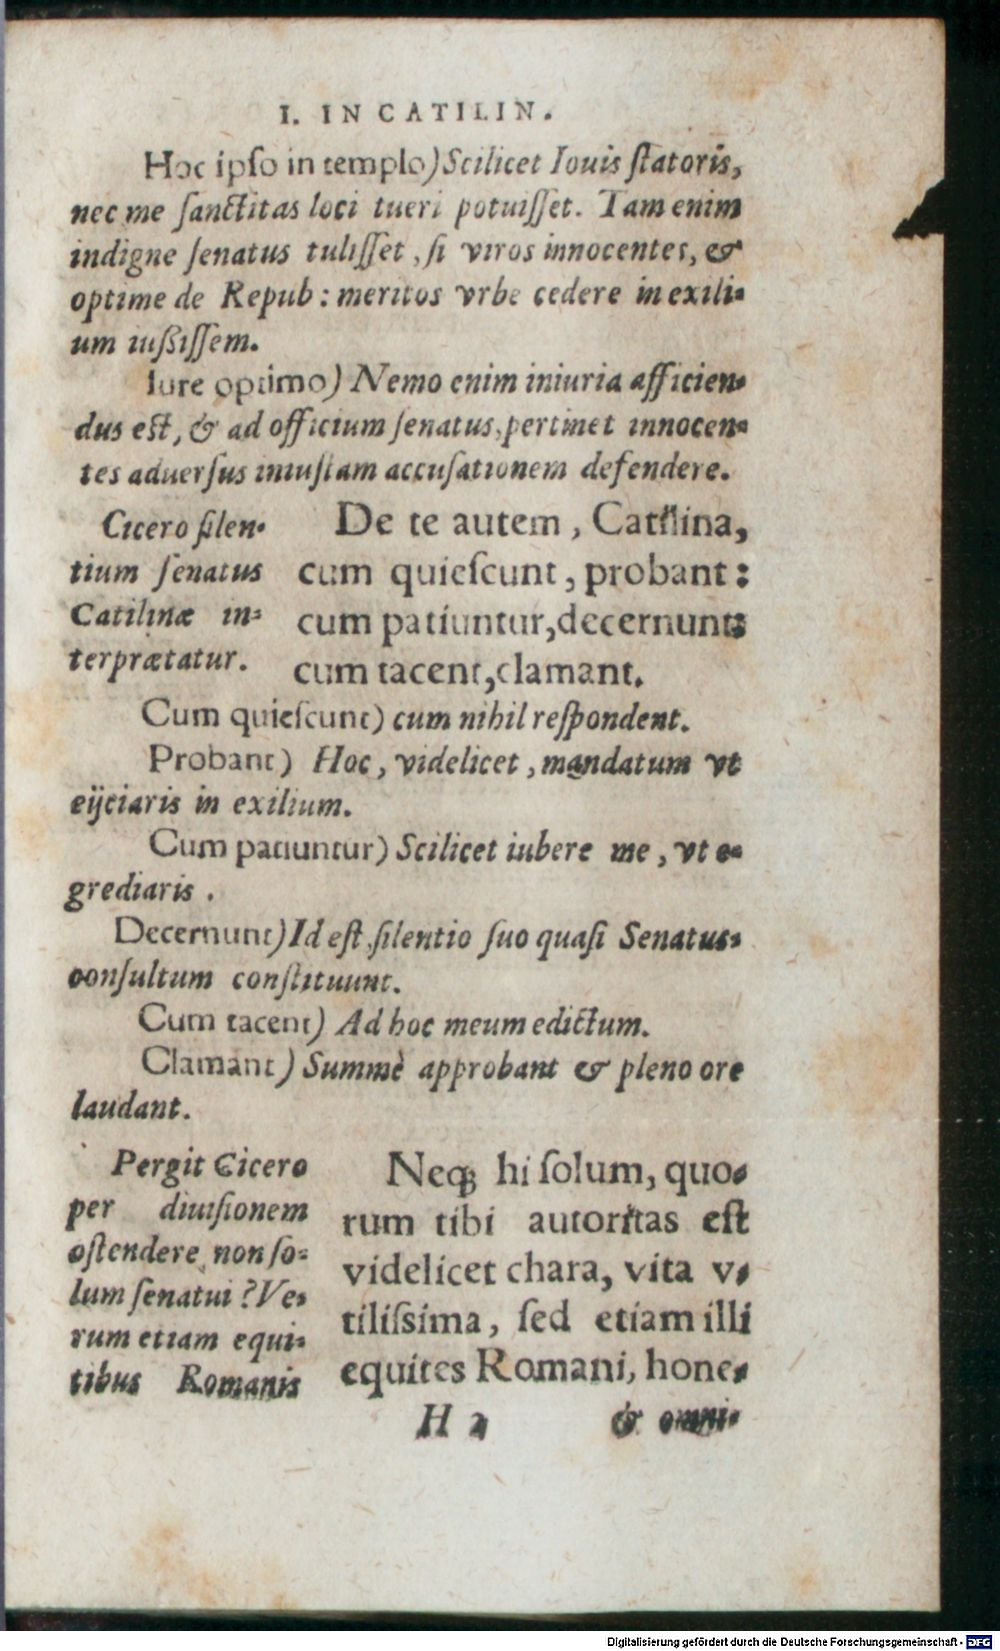 I. IN CATILIN.
Hoc ipso in templo) Scilicet Iouis ſtatoris,
nec me ſanctitas loci tueri potuiſſet. Tam enim
indigne ſenatus tuliſſet, ſi viros innocentes, &
optime de Repub: meritos vrbe cedere in exili-
um iußiſſem.
Iure optimo) Nemo enim iniuria afficien-
dus est, & ad officium ſenatus, pertinet innocen-
tes aduerſus iniuſtam accuſationem defendere.
Cicero ſilen-
tium ſenatus
Catilinæ in-
terprætatur.
De te autem, Catilina,
cum quieſcunt, probant:
cum patiuntur, decernunt:
cum tacent, clamant.
Cum quieſcunt) cum nihil reſpondent.
Probant) Hoc, videlicet, mandatum vt
eijciaris in exilium.
Cum patiuntur) Scilicet iubere me, vt e-
grediaris.
Decernunt) Id eſt, ſilentio ſuo quaſi Senatus-
conſultum conſtituunt.
Cum tacent) Ad hoc meum edictum.
Clamant) Summè approbant & pleno ore
laudant.
Pergit Cicero
per diuiſionem
oſtendere non ſo-
lum ſenatui? Ve-
rum etiam equi-
tibus Romanis
Neqꝫ hi ſolum, quo-
rum tibi autoritas eſt
videlicet chara, vita v-
tiliſsima, ſed etiam illi
equites Romani, hone-
H 2 & omni-
Digitalisierung gefördert durch die Deutsche Forschungsgemeinschaft - DFG